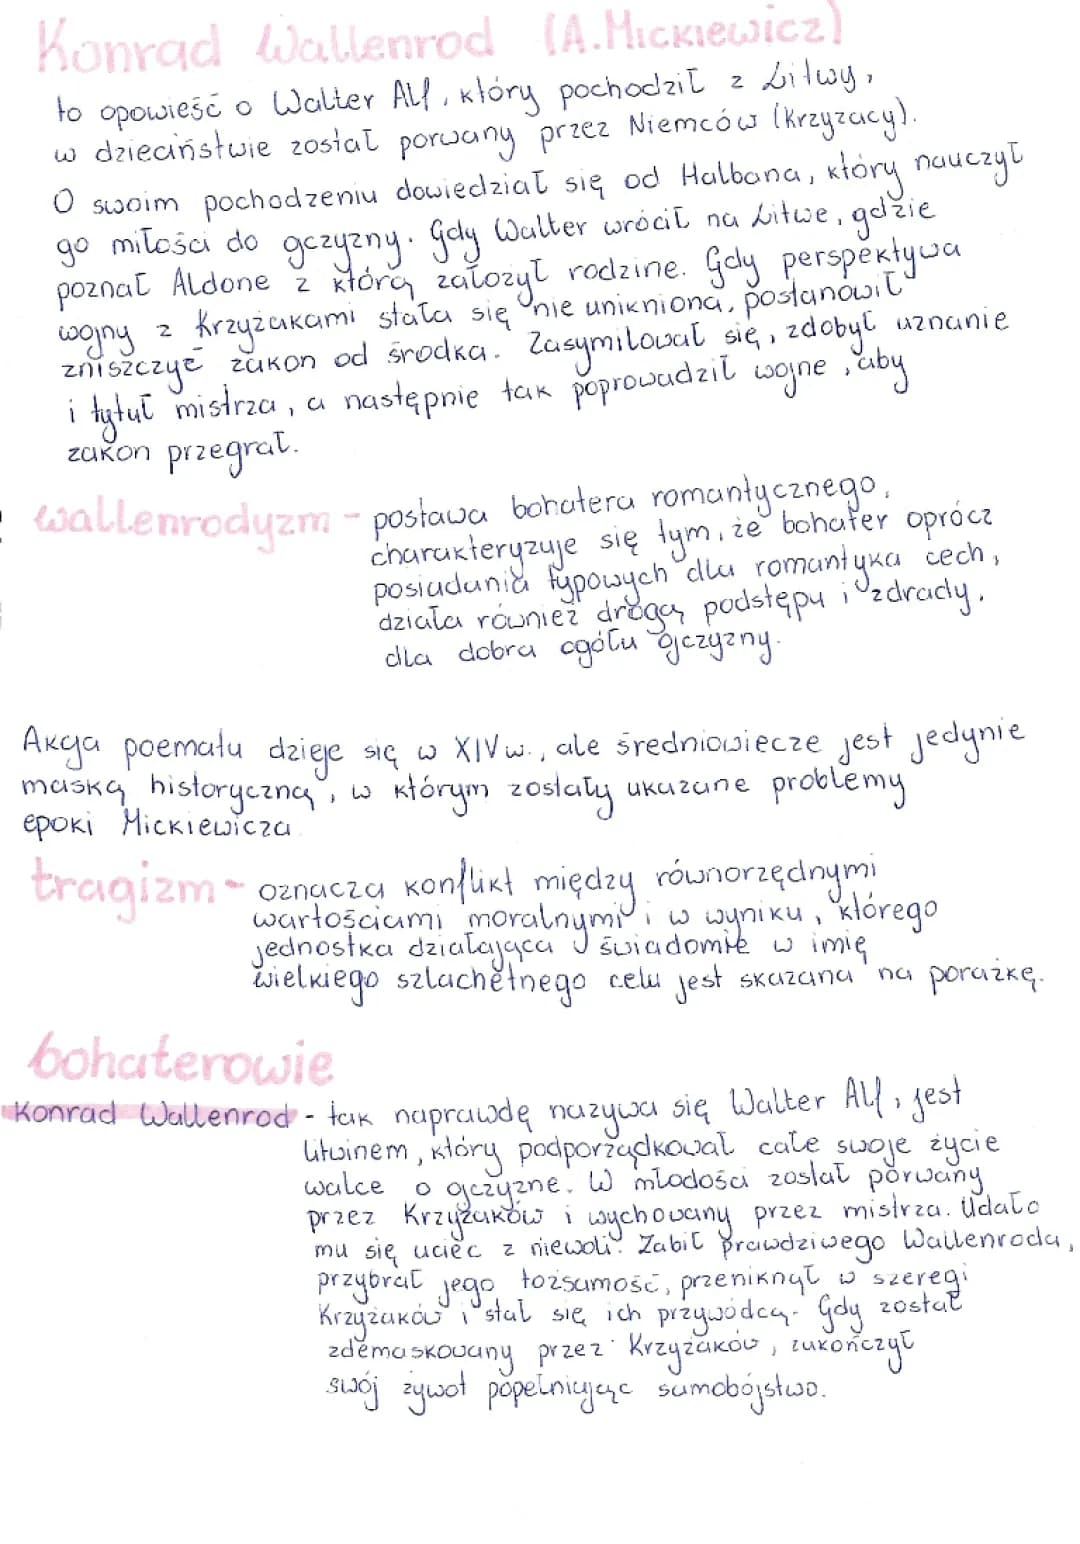 Konrad Wallenrod (A.Mickiewicz)
to opowieść o Walter Alf, który pochodził z Litwy,
w dzieciństwie został porwany przez Niemców (Krzyzacy).
O swoim pochodzeniu dowiedział się od Halbana, który nauczył
go miłości do ojczyzny. Gdy Walter wrócił na Litwe, gdzie
poznał Aldone z którą założył rodzine. Gdy perspektywa
wojny z Krzyżakami stała się nie unikniona, postanowił
zniszczyć zakon od środka. Zasymilował się, zdobył uznanie
i tytuł mistrza, a następnie tak poprowadził wojne, aby
zakon przegrał.
wallenrodyzm - postawa bohatera romantycznego,
charakteryzuje się tym, że bohater oprócz
posiadania typowych dla romantyka cech,
działa również drogą podstępu i zdrady,
dla dobra ogółu ojczyzny.
Akcja poematu dzieje się w XIV w., ale średniowiecze jest jedynie
maską historyczną, w którym zostały ukazane problemy
epoki Mickiewicza
tragizm - oznacza konflikt między równorzędnymi
wartościami moralnymi i w wyniku, którego
jednostka działająca świadomie w imię
wielkiego szlachetnego celu jest skazana na porażkę.
bohaterowie
Konrad Wallenrod - tak naprawdę nazywa się Walter Alf, jest
litwinem, który podporządkował całe swoje życie
walce o ojczyzne. W młodości został porwany
przez Krzyżaków i wychowany przez mistrza. Udało
mu się uciec z niewoli. Zabił prawdziwego Wallenroda,
przybrał jego tożsamość, przeniknął w szeregi
Krzyżaków i stał się ich przywódcą. Gdy został
zdemaskowany przez Krzyżaków, zakończył
swój żywot popełniając samobójstwo.